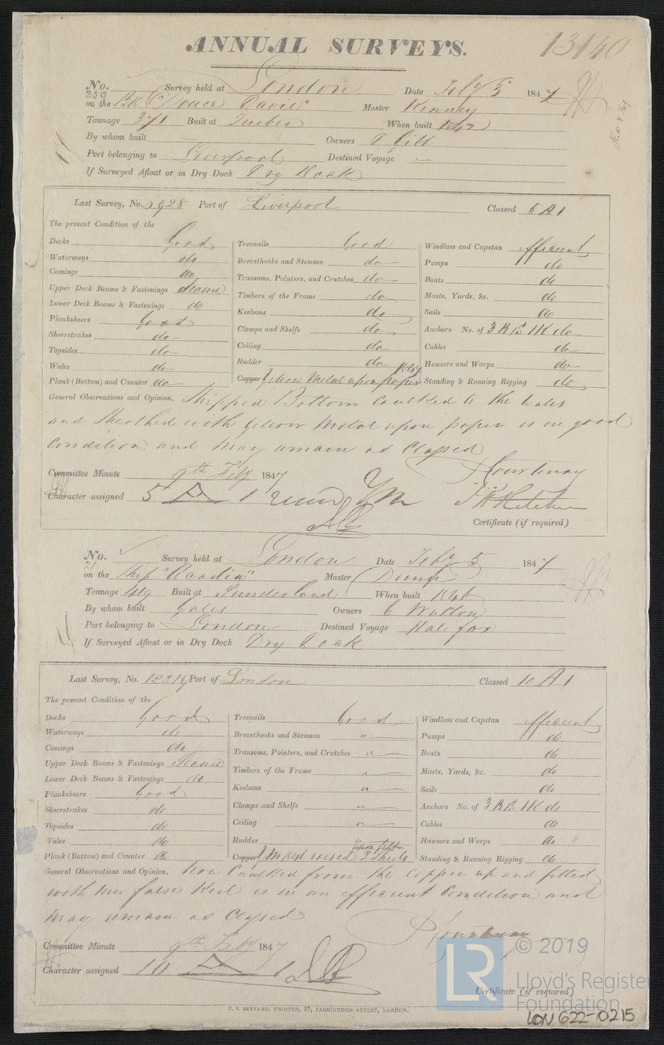 ANNUAL SURVEYS.
13140
No. 259 Survey held at London Date Feby 5 1847
on the Bk Master Kenney
Tonnage 371 Built at Quebec When built 1842
By whom built Owners Gill
Port belonging to Liverpool Destined Voyage
If Surveyed Afloat or in Dry Dock Dry Dock
Last Survey, No. Port of Liverpool Classed 5 A 1
The present Condition of the
Decks Good Treenails Good Windlass and Capstan efficient
Waterways do Breasthooks and Stemson do Pumps do
Comings do Transoms, Pointers, and Crutches do Boats do
Upper Deck Beams & Fastenings Timbers of the Frame do Masts, Yards, &c. do
Lower Deck Beams & Fastenings do Keelsons do Sails do
Planksheers Good Clamps and Shelfs do Anchors No. of 3 B B 1 K do
Sheerstrakes do Ceiling do Cables do
Topsides do Rudder do Hawsers and Warps do
Wales do Copper Yellow Metal upon paper Standing & Running Rigging do
Plank (Bottom) and Counter do
General Observations and Opinion, Stripped Bottom caulked to the Wales
and sheathed with yellow Metal upon paper is in good
Condition and may remain as Classed
Committee Minute 9th Feby 1847
Character assigned 5 A 1
Courtenay
Certificate (if required)
No. 21 Survey held at London Date Feby 5 1847
on the Ship "Acadia" Master
Tonnage Built at Sunderland When built 1846
By whom built Gales Owners C Walton
Port belonging to London Destined Voyage Halifax
If Surveyed Afloat or in Dry Dock Dry Dock
Last Survey, No. Port of London Classed 10 A 1
The present Condition of the
Decks Good Treenails Good Windlass and Capstan efficient
Waterways do Breasthooks and Stemson " Pumps do
Comings do Transoms, Pointers, and Crutches " Boats do
Upper Deck Beams & Fastenings Timbers of the Frame " Masts, Yards, &c. do
Lower Deck Beams & Fastenings do Keelsons " Sails do
Planksheers Good Clamps and Shelfs " Anchors No. of 3 B B 1 K do
Sheerstrakes do Ceiling " Cables do
Topsides do Rudder Hawsers and Warps do
Wales do Copper upon felt Standing & Running Rigging do
Plank (Bottom) and Counter do
General Observations and Opinion, been Caulked from the Copper up and fitted
with new false Keel is in an efficient Condition and
may remain as Classed
Committee Minute 9th Feby 1847
Character assigned 10 A 1
Certificate (if required)
C. F. SEYFANG, PRINTER, 57, FARRINGDON STREET, LONDON.
LR © 2019
Lloyd's Register
Foundation
LON 622-0215